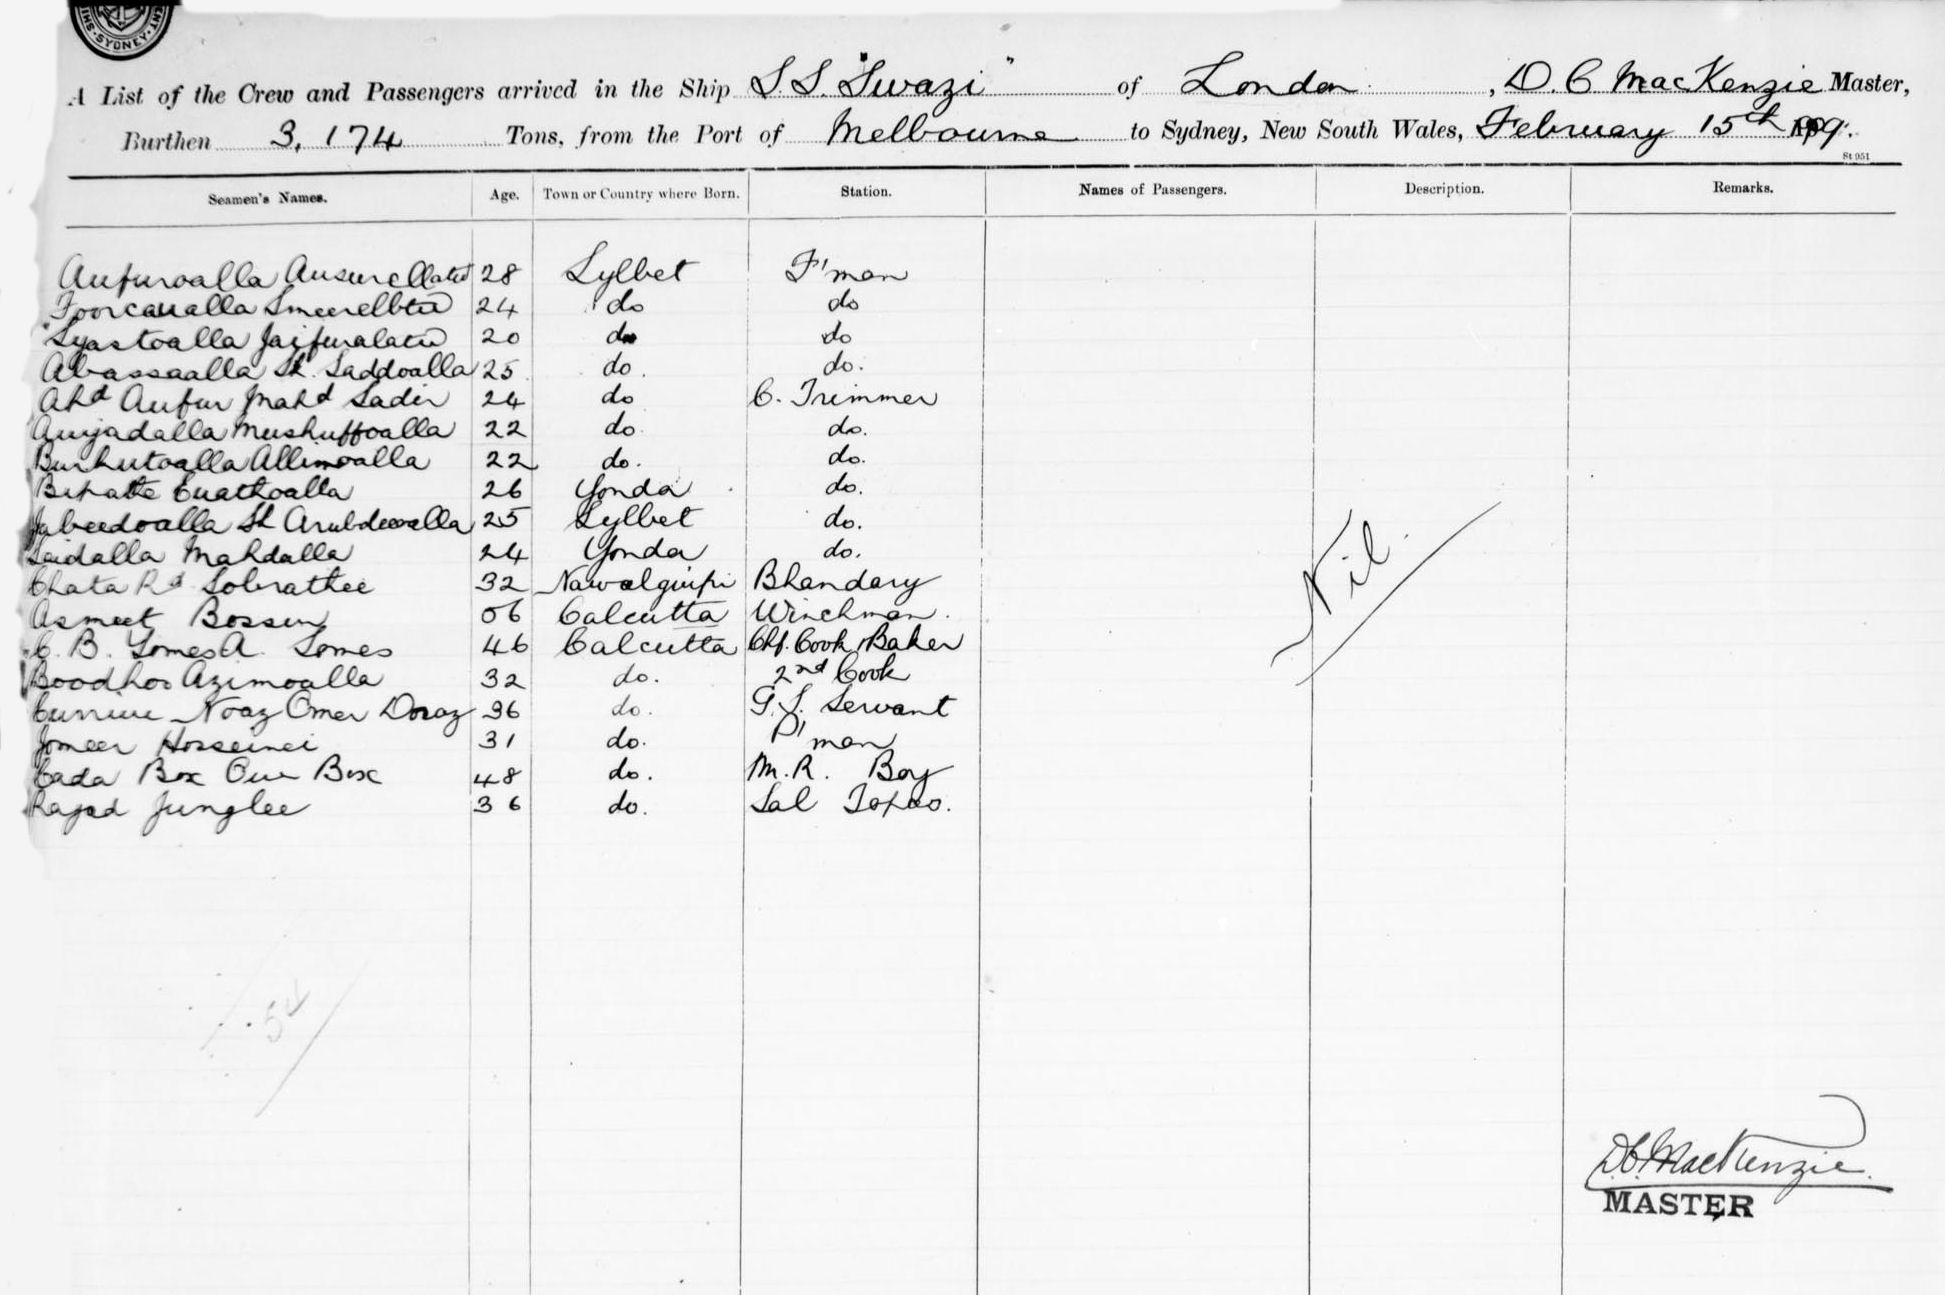 SYDNEY
A List of the Crew and Passengers arrived in the Ship S.S. "Swazi" of London, D. C. MacKenzie Master,
Burthen 3,174 Tons, from the Port of Melbourne to Sydney, New South Wales, February 15th 1909.
St 951
Seamen's Names. Age. Town or Country where Born. Station. Names of Passengers. Description. Remarks.
28 Sylbet F'man
24 do do
Syastoalla 20 do do
Abassaalla Sk. Saddoalla 25 do. do.
Ahd Aufur Mahd Sadir 24 do C. Trimmer
Amjadalla Mushuffoalla 22 do. do.
Burhutoalla Allimoalla 22 do. do.
26 Yonda do.
Jabeedoalla Sk 25 Sylbet do.
Saidalla Mahdalla 24 Yonda do.
Chata Rd Sobrathee 32 Bhandary
Asmeet Bossen 56 Calcutta Winchman.
C. B. Gomes A. Gomes 46 Calcutta Chf. Cook & Baker
Boodhoo Azimoalla 32 do. 2nd Cook
Noaz Omer Doraz 36 do. G. S. Servant
Jomeer Hosseinei 31 do. P'man
Cada Box Box 48 do. M. R. Boy
Rajad Junglee 36 do. Sal Topao.
Nil.
54
D.C. MacKenzie.
MASTER